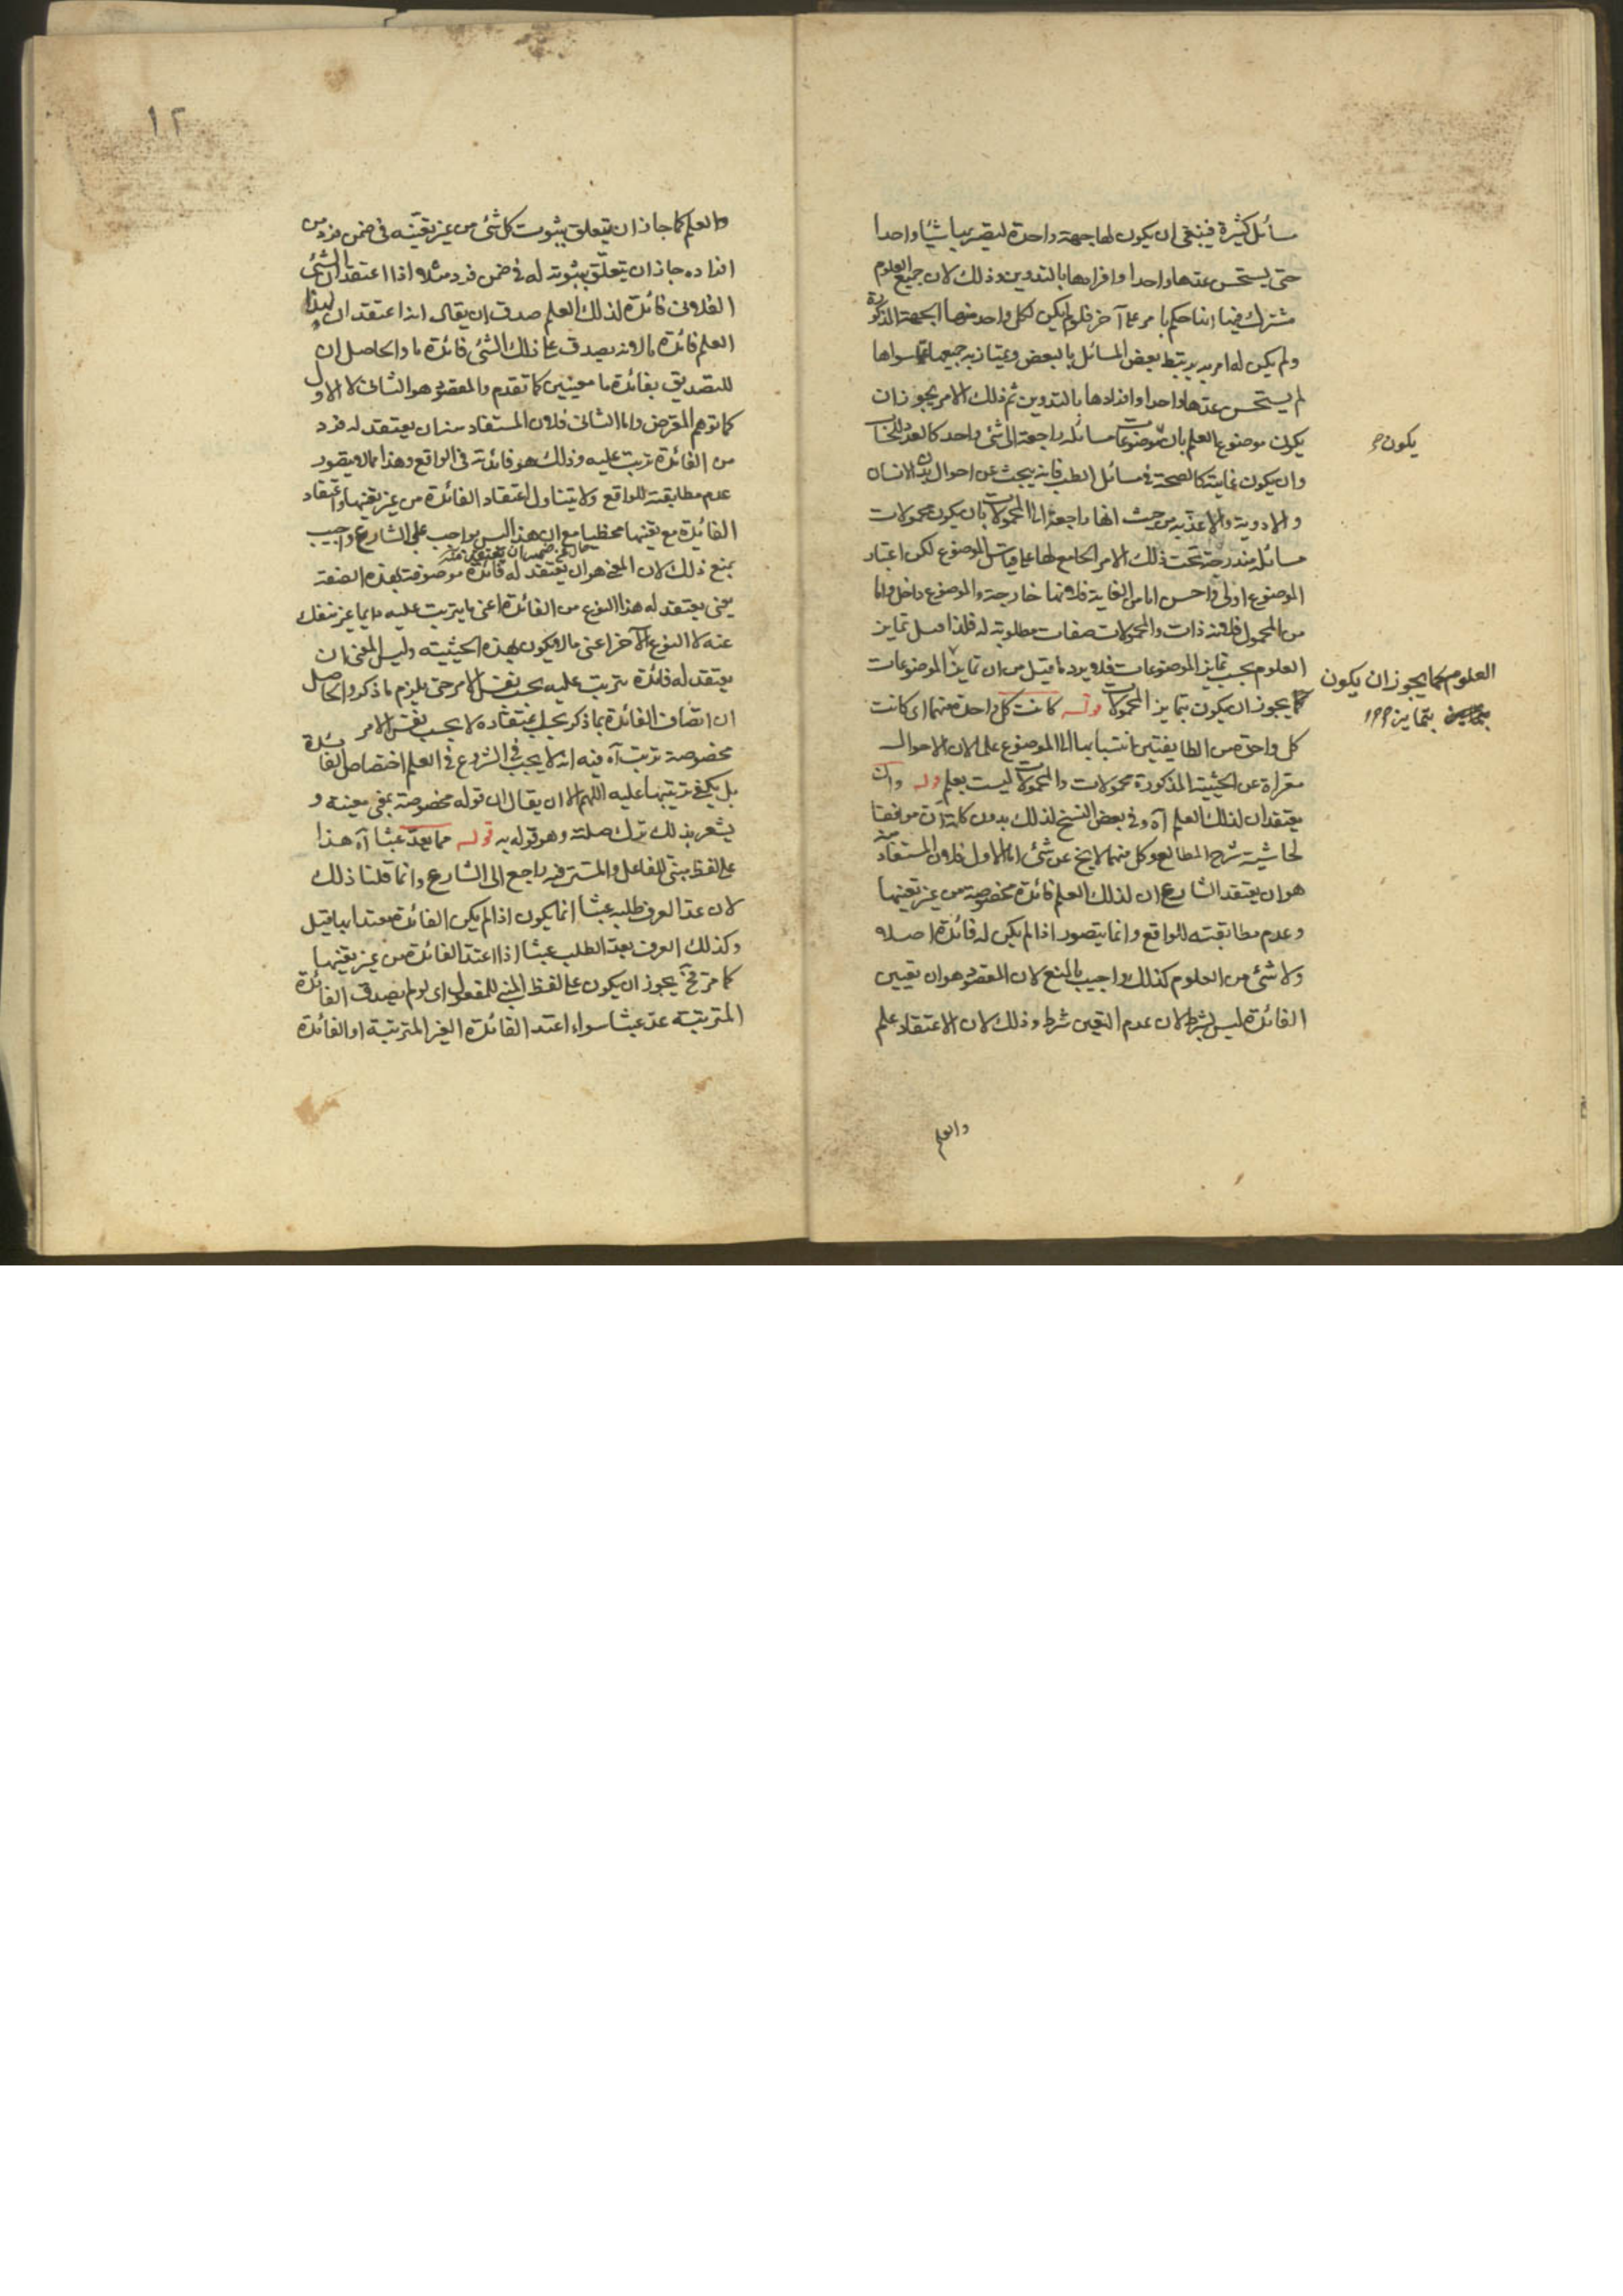 مسائل كثيرة فينبغي ان يكون لها جهة واحدة ليصير بها شيئا واحدا
حتى يستحسن عدها واحدا وافرادها بالتدوين وذلك لان جميع العلوم
مشترك في انها حكم بامر على آخر فلو لم يكن لكل واحد منها الجهة المذكورة
ولم يكن له امر به يرتبط بعض المسائل بالبعض ويمتاز به جميعها عما سواها
لم يستحسن عدها واحدا وافرادها بالتدوين ثم ذلك الامر يجوز ان
يكون موضوع العلم بان موضوعات مسائله راجعة الى شئ واحد كالعدد للحساب
وان يكون غايته كالصحة في مسائل الطب فانه يبحث عن احوال بدن الانسان
والادوية والاغذية من حيث انها راجعة الى المحمولات بان يكون محمولات
مسائله مندرجة تحت ذلك الامر الجامع لها على قياس الموضوع لكن اعتبار
الموضوع اولى واحسن اما من الغاية فلانها خارجة والموضوع داخل واما
من المحمول فلانه ذات والمحمولات صفات مطلوبة له فلذا قيل تمايز
العلوم بحسب تمايز الموضوعات فلا يرد ما قيل من ان تمايز الموضوعات
كما يجوز ان يكون بتمايز المحمولات قوله كانت كل واحدة منهما اي كانت
كل واحدة من الطايفتين انتسابها الى الموضوع على الان الاحوال
معراة عن الحيثية المذكورة محمولات والمحمولات ليست بعلم قوله وان
يعتقد ان لذلك العلم آه وفي بعض النسخ لذلك بدون كلمة ان موافقا
لحاشية شرح المطالع وكل منهما لا يخ عن شئ اما الاول فلان المستفاد منه
هو ان يعتقد الشارع ان لذلك العلم فائدة مخصوصة من غير تعينها
وعدم مطابقته للواقع وانما يتصور اذا لم يكن له فائدة اصلا
ولا شئ من العلوم كذلك واجيب بالمنع لان المقصود هو ان تعيين
الفائدة ليس بشرط لان عدم التعين شرط وذلك لان الاعتقاد علم
والعلم
يكون
العلوم كما يجوز ان يكون
بتمايز
١٢
والعلم كما جاز ان يتعلق بثبوت كل شئ من غير تعينه في ضمن فرد من
افراده جاز ان يتعلق بثبوته له في ضمن فرد مثلا اذا اعتقد ان الشئ
الفلاني فائدة لذلك العلم صدق ان يقال انه اعتقد ان لهذا
العلم فائدة ما لانه يصدق على ذلك الشئ فائدة ما والحاصل ان
للتصديق بفائدة ما معنيين كما تقدم والمقصود هو الثاني لا الاول
كما توهم المعترض واما الثاني فلان المستفاد منه ان يعتقد له فرد
من الفائدة ترتب عليه وذلك هو فائدته في الواقع وهذا مالا يتصور
عدم مطابقته للواقع ولا يتناول اعتقاد الفائدة من غير تعينها واعتقاد
الفائدة مع تعينها مع ان هذا ليس بواجب على الشارع واجيب
بمنع ذلك لان المعنى هو ان يعتقد له فائدة موصوفة بهذه الصفة
يعني يعتقد له هذا النوع من الفائدة اعني ما يترتب عليه دايما غير منفك
عنه لا النوع الآخر اعني مالا يكون بهذه الحيثية وليس المعنى ان
يعتقد له فائدة يترتب عليه بحسب نفس الامر حتى يلزم ما ذكر والحاصل
ان اتصاف الفائدة بما ذكر بحسب اعتقاده لا بحسب نفس الامر
مخصوصة ترتب آه فيه انه لا يجب في الشروع في العلم اختصاص الفائدة
بل يكفي ترتبها عليه اللهم الا ان يقال ان قوله مخصوصة بمعنى معينة و
يشعر بذلك ترك صلته وهو قوله به قوله مما يعد عبثا آه هذا
على لفظ مبني للفاعل والمستتر فيه راجع الى الشارع وانما قلنا ذلك
لان عد العرف طلبه عبثا انما يكون اذا لم يكن الفائدة معتدا بها قيل
وكذلك العرف يعد الطلب عبثا اذا اعتد الفائدة من غير تعينها
كما مر فح يجوز ان يكون على لفظ المبني للمفعول اي لو لم يصدق الفائدة
المترتبة عد عبثا سواء اعتد الفائدة الغير المترتبة او الفائدة